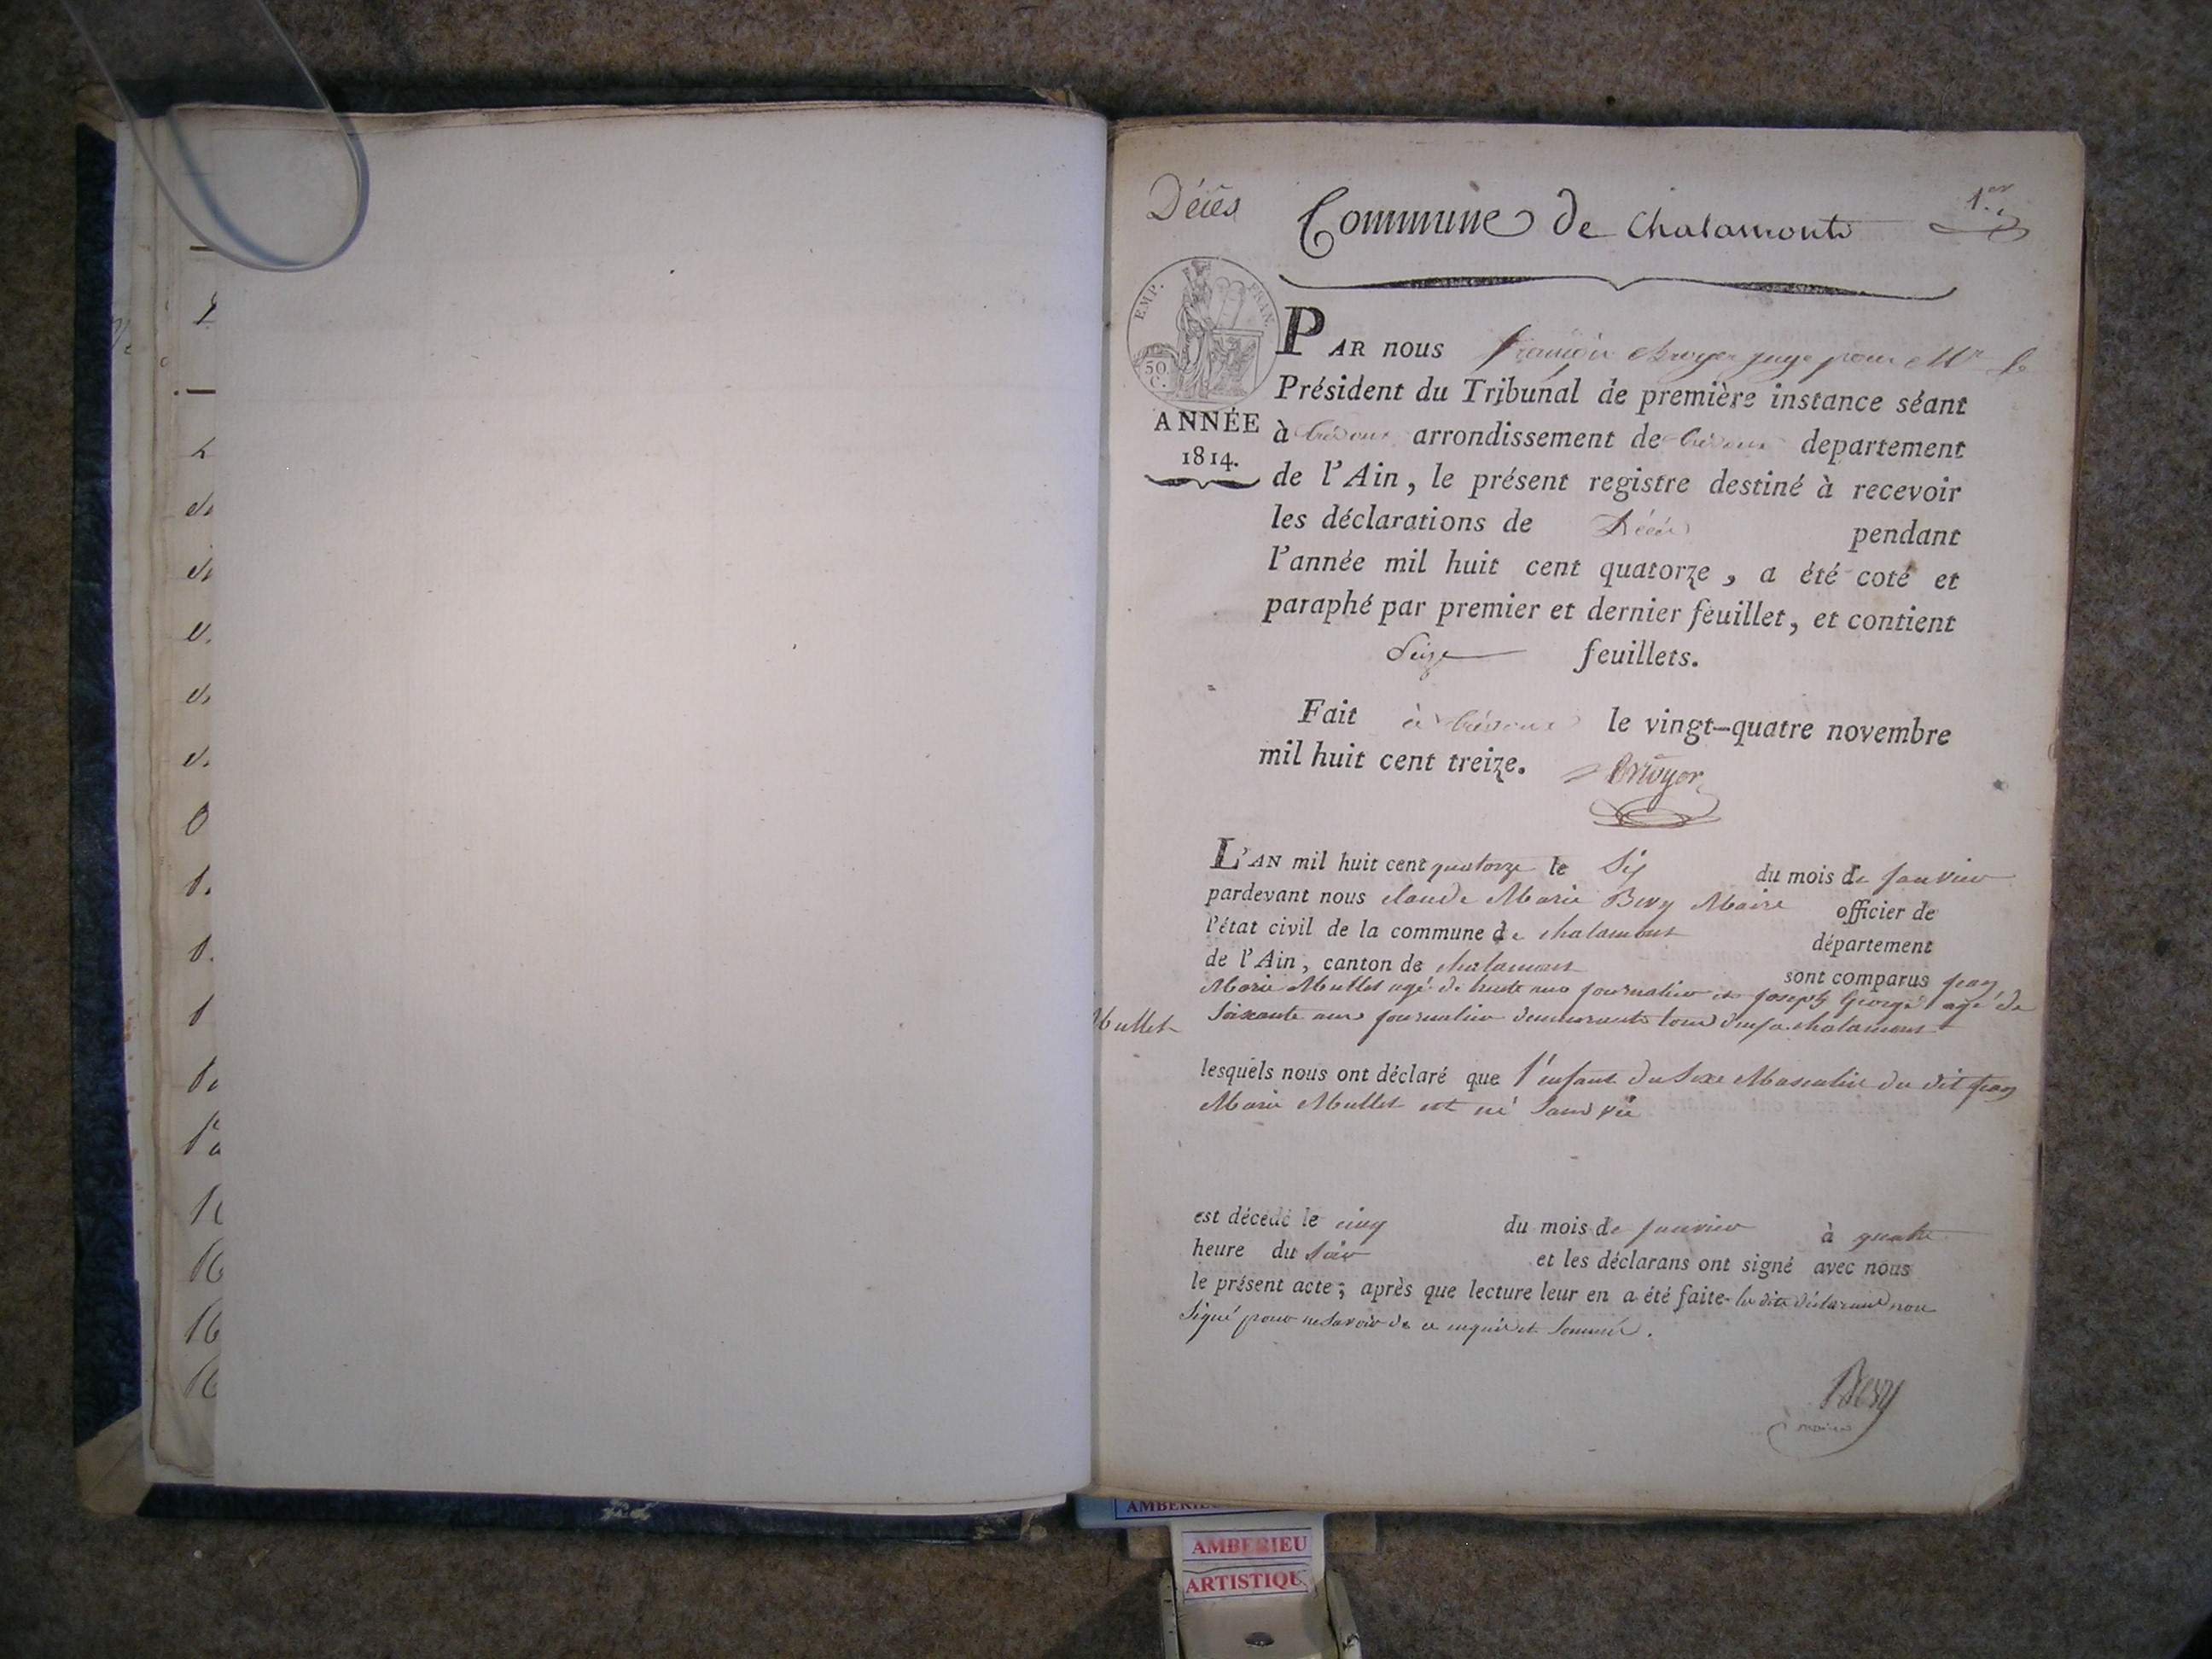 Décès
Commune de Chalamont
1.er
EMP. FRAN.
50
C.
ANNÉE
1814.
PAR nous françois Bruyer juge pour Mr le
Président du Tribunal de première instance séant
à trévoux arrondissement de trévoux departement
de l'Ain, le présent registre destiné à recevoir
les déclarations de Décès pendant
l'année mil huit cent quatorze, a été coté et
paraphé par premier et dernier feuillet, et contient
Seize feuillets.
Fait à trévoux le vingt-quatre novembre
mil huit cent treize.
L'AN mil huit cent quatorze le Six du mois de janvier
pardevant nous claude Marie Bery Maire officier de
l'état civil de la commune de chalamont département
de l'Ain, canton de chalamont sont comparus jean
Marie Mullet agé de trente ans journalier et joseph George agé de
Soixante ans journalier demeurants tous deux a chalamont
Mullet
lesquels nous ont déclaré que l'enfant du Sexe Masculin du dit jean
Marie Mullet est né Sans vie
est décédé le cinq du mois de janvier à quatre
heure du Soir et les déclarans ont signé avec nous
le présent acte; après que lecture leur en a été faite les dits déclarans non
Signé pour ne Savoir de ce enquis et Sommés.
Bery
maire
AMBERIEU
ARTISTIQU